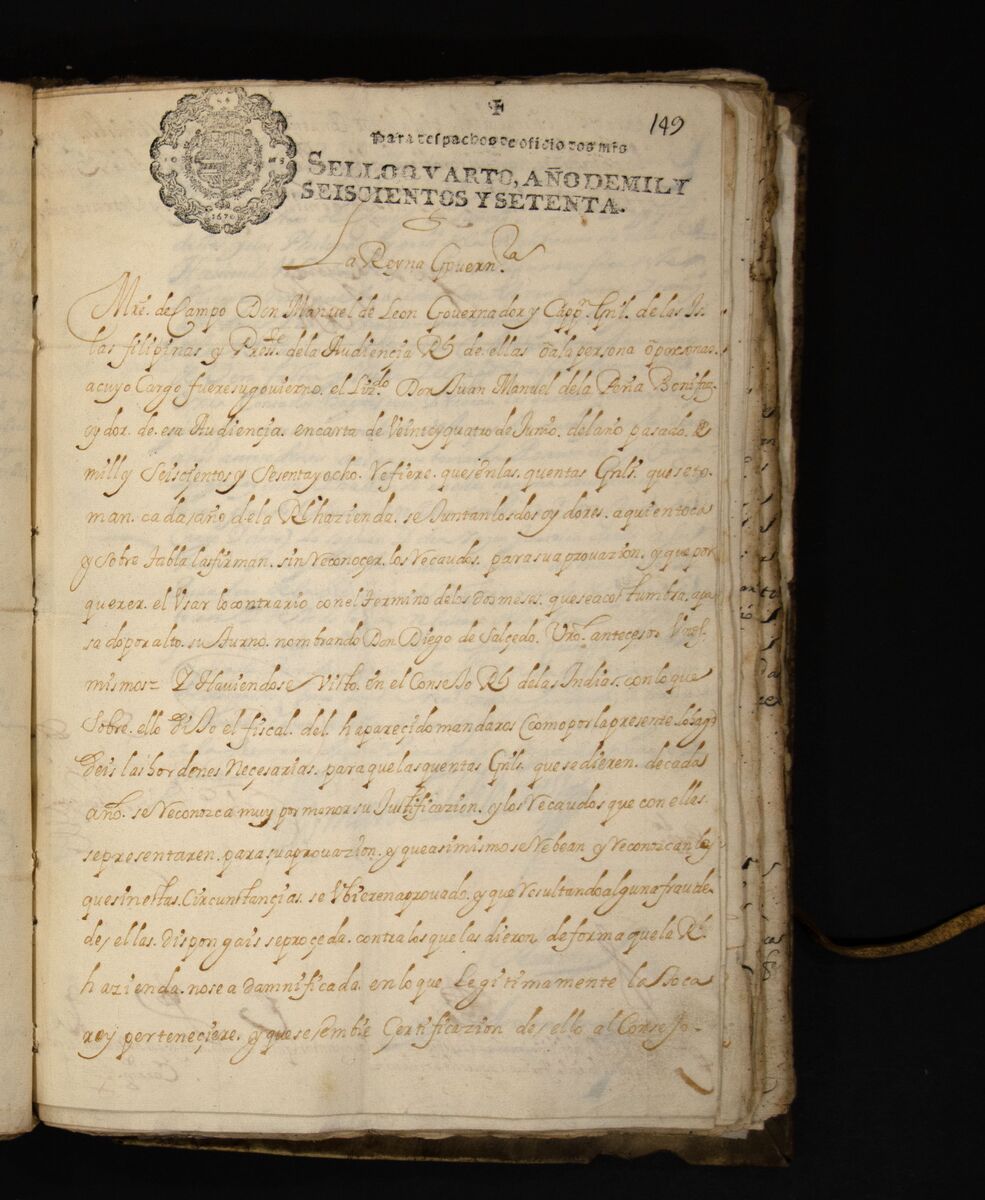 149
Para despachos de oficio dos mrs
SELLO QVARTO, AÑO DE MIL Y
SEISCIENTOS Y SETENTA.
1670
La Reyna Govern.ra
Mre. de Campo Don Manuel de Leon Governador y Capp.n Gnl. de las Is
las filipinas y Pres.te de la Audiencia Rl. de ellas õ a la persona õ personas.
a cuyo Cargo fuere su govierno. el Liz.do Don Juan Manuel de la Peña Bonifaz
oydor. de. esa Audiençia. en carta de Veinte y quatro de Junio. del año pasado. de
mill y Seisçientos y Sesenta y ocho. Refiere. que en las. quentas Gnls. que se to
man. cada año de la Rl. hazienda. se Juntan los dos oydores. a quien toca
y sobre tabla las firman. sin Reconoçer. los Recaudos. para su aprovazion. y que por
querer. el Usar lo contrario. con el termino de los dos meses. que se acostumbra. a pa
sado por alto. su turno. nombrando Don Diego de Salçedo. Vro. antecesor
mismo Y Haviendose Visto. en el Consejo Rl. de las Indias. con lo que
Sobre. ello dijo el fiscal. del. ha pareçido mandaros (como por la presente lo hago)
deis las hordenes Neçesarias. para que las quentas Gnls. que se dieren. de cada
año. se Reconozca muy por menor su Justificazion. y los Recaudos que con ellas.
se presentaren. para su aprovazion. y que asi mismo se Rebean y Reconozcan las
que sin estas. Circunstançias. se Ubieren aprovado. y que Resultando alguna fraude.
de ellas. dispongais se proçeda. contra los que las dieron. de forma que la Rl.
hazienda. no sea damnificada. en lo que Legitimamente la toca
re y perteneçiere. y que se embie Certificazion de ello al Consejo-